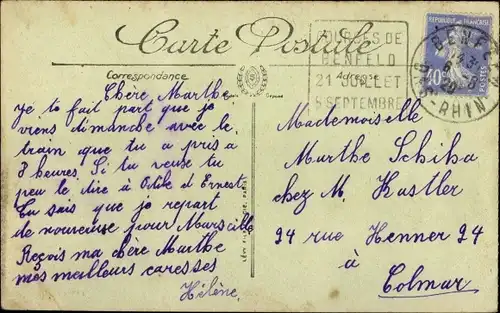 Carte Postale
COURSES DE
BENFELD
21 JUILLET
5 SEPTEMBRE
RÉPUBLIQUE FRANÇAISE
BENFELD
BAS-RHIN
Correspondance
Adresse
Chère Marthe
Je te fait part que je
viens dimanche avec le
train que tu a pris a
3 heures. Si tu veux tu
peu le dire à Odile d'Ernest
Tu sais que je repart
de nouveau pour Marseille
Reçois ma chère Marthe
mes meilleurs caresses
Hélène
Mademoiselle
Marthe Schiba
chez M. Kastler
24 rue Henner 24
à
Colmar